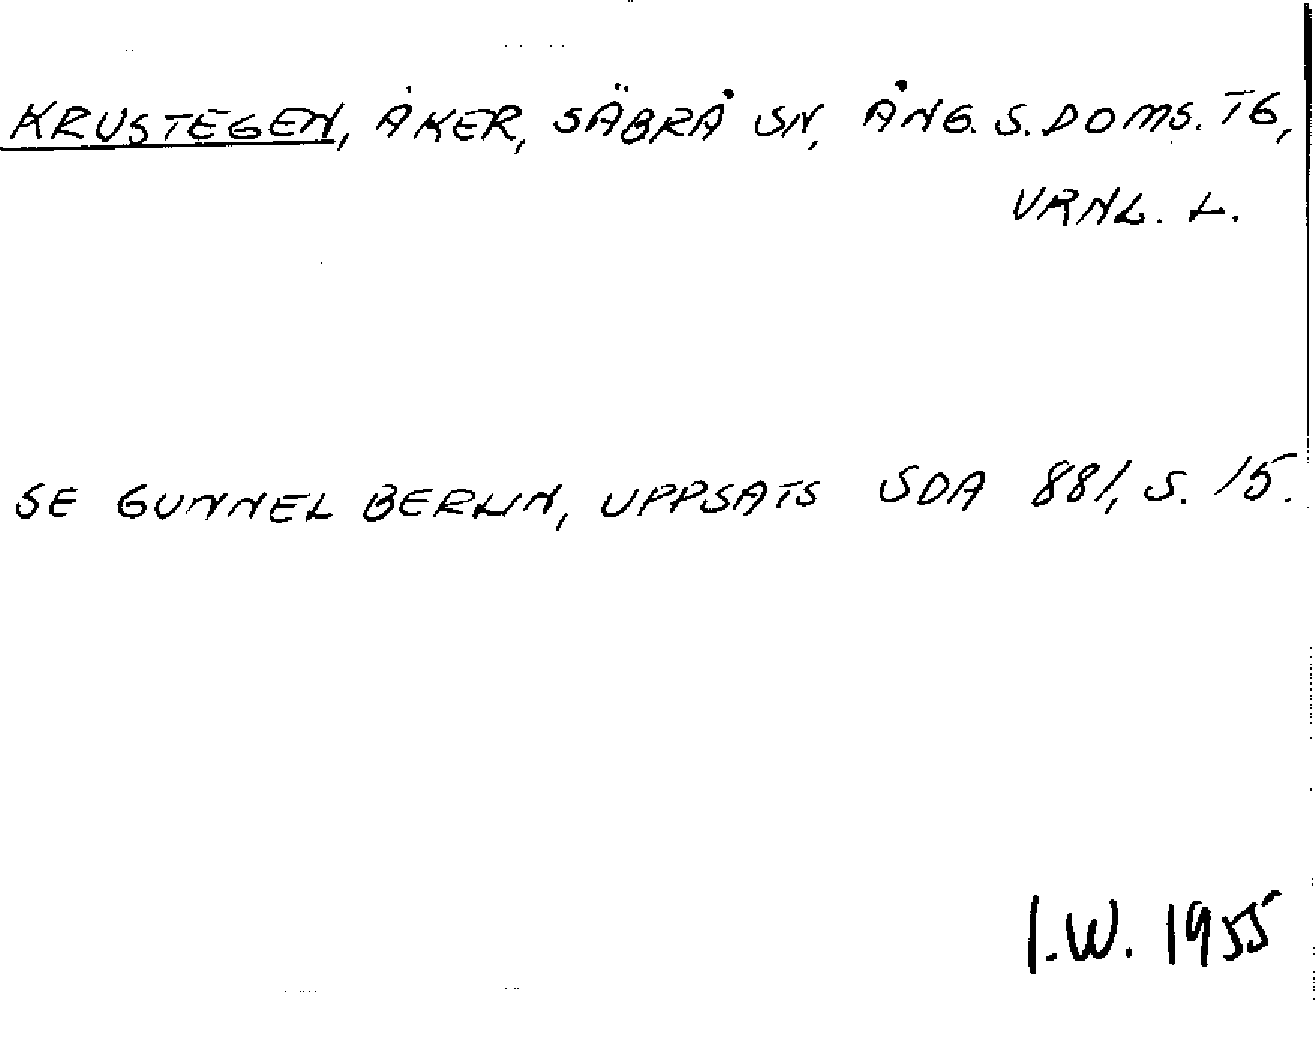 KRUSTEGEN, ÅKER, SÄBRÅ SN, ÅNG. S. DOMS. TG,
VRNL. L.
SE GUNNEL BERLIN, UPPSATS SDA 881, S. 15.
I.W. 1955